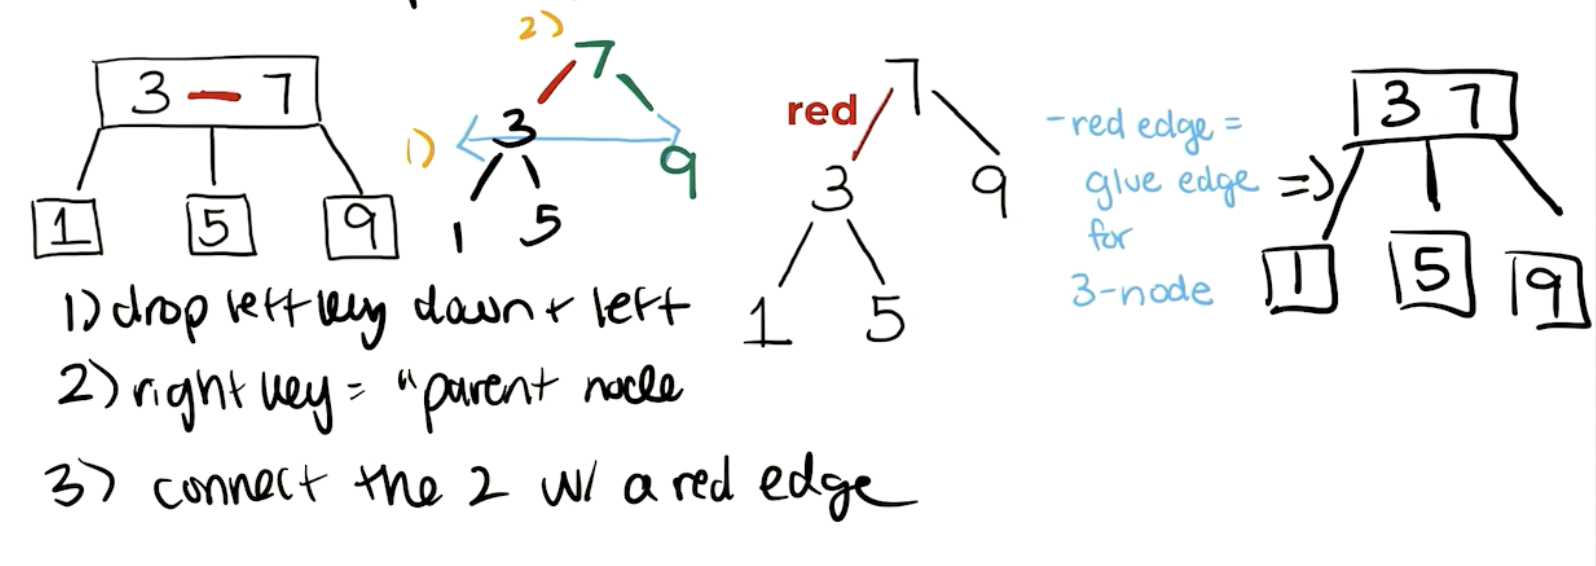 3 — 7
1 5 9
2) 7
1) 3
9
1 5
7
red
3 9
1 5
- red edge =
glue edge =>
for
3-node
3 7
1 5 9
1) drop left key down + left
2) right key = "parent node
3) connect the 2 w/ a red edge